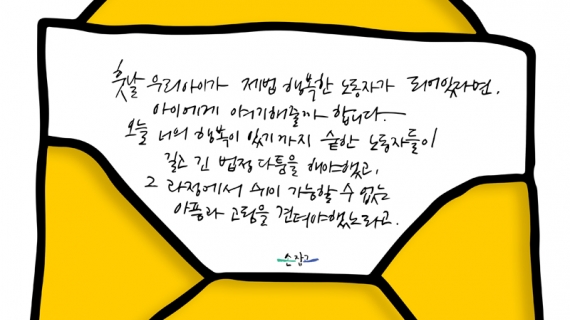 훗날 우리아이가 제법 행복한 노동자가 되어있다면.
아이에게 얘기해줄까 합니다.
오늘 너의 행복이 있기까지 숱한 노동자들이
길고 긴 법정 다툼을 해야했고,
그 과정에서 쉬이 가늠할 수 없는
아픔과 고통을 견뎌야했노라고.
손잡고